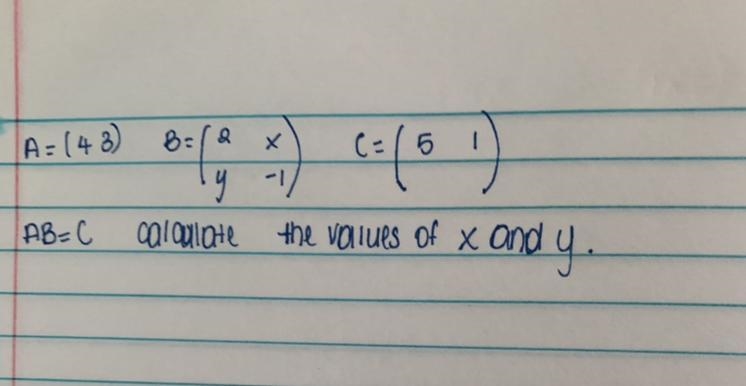 A = (4 3) B = (2 x C = (5 1)
y -1)
AB = C calculate the values of x and y.